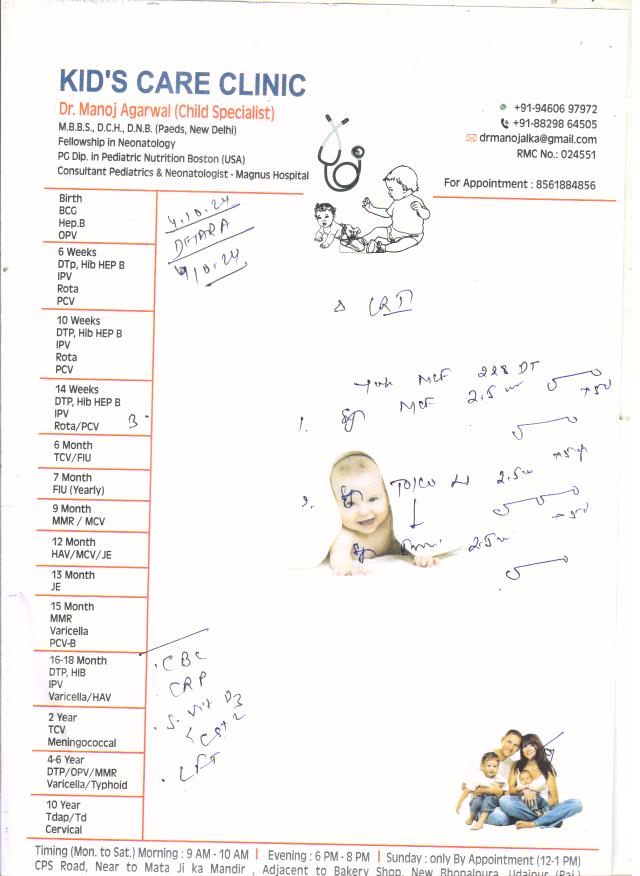 KID'S CARE CLINIC
Dr. Manoj Agarwal (Child Specialist)
M.B.B.S., D.C.H., D.N.B. (Paeds, New Delhi)
Fellowship in Neonatology
PG Dip. in Pediatric Nutrition Boston (USA)
Consultant Pediatrics & Neonatologist - Magnus Hospital
+91-94606 97972
+91-88298 64505
drmanojalka@gmail.com
RMC No.: 024551
For Appointment : 8561884856
Birth
BCG
Hep.B
OPV
4.10.24
6 Weeks
DTp, Hib HEP B
IPV
Rota
PCV
10.24
10 Weeks
DTP, Hib HEP B
IPV
Rota
PCV
14 Weeks
DTP, Hib HEP B
IPV
Rota/PCV
3
MCF 228 DT
1. MCF 2.5
6 Month
TCV/FIU
7 Month
FIU (Yearly)
2. 2.5
9 Month
MMR / MCV
12 Month
HAV/MCV/JE
2.5
13 Month
JE
15 Month
MMR
Varicella
PCV-B
16-18 Month
DTP, HIB
IPV
Varicella/HAV
CBC
CRP
S. Vit D3
2 Year
TCV
Meningococcal
4-6 Year
DTP/OPV/MMR
Varicella/Typhoid
LFT
10 Year
Tdap/Td
Cervical
Timing (Mon. to Sat.) Morning : 9 AM - 10 AM | Evening : 6 PM - 8 PM | Sunday : only By Appointment (12-1 PM)
CPS Road, Near to Mata Ji ka Mandir , Adjacent to Bakery Shop, New Bhopalpura, Udaipur (Raj.)